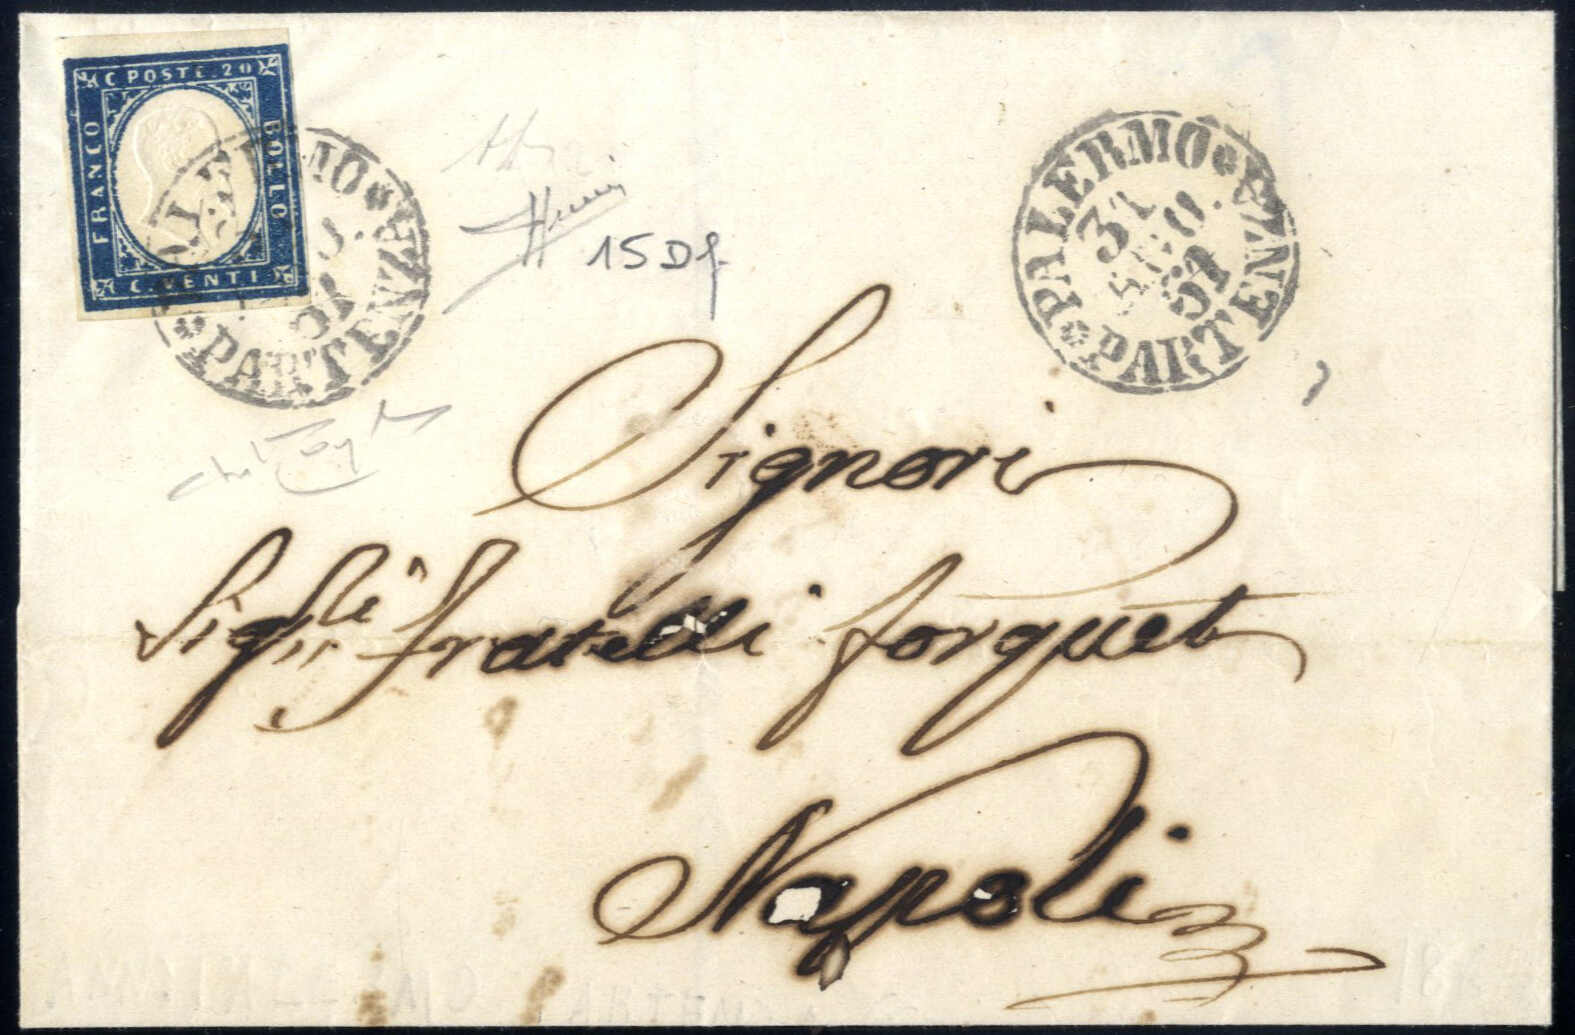 C POSTE. 20
FRANCO
BOLLO
C. VENTI
PALERMO
PARTENZA
PALERMO
31
PARTENZA
15Df
Signori
Sig.ri Fratelli Forquet
Napoli